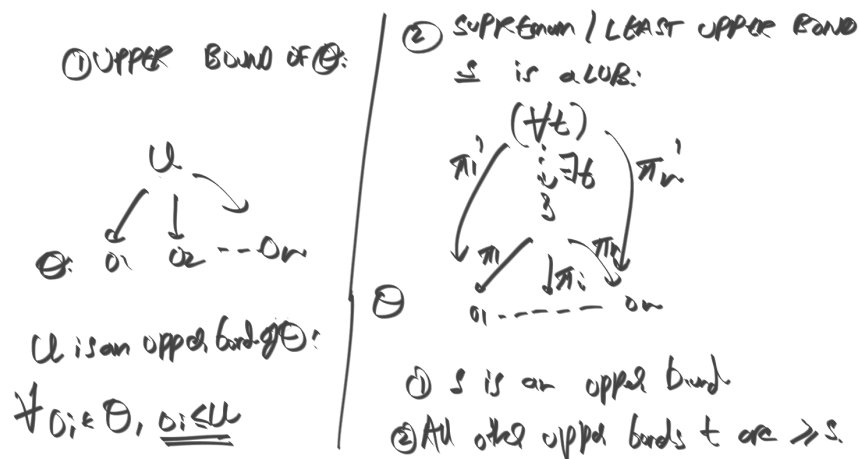 ① UPPER BOUND OF Θ:
U
Θ: O1 O2 --- On
U is an upper bond of Θ:
∀ Oi ∈ Θ, Oi ≤ U
② SUPREMUM / LEAST UPPER BOND
S is a LUB:
(∀t)
π1' ∃! πn'
S
π1 πi πn
Θ O1 ------- On
① S is an upper bound
② All other upper bonds t are ≥ S.